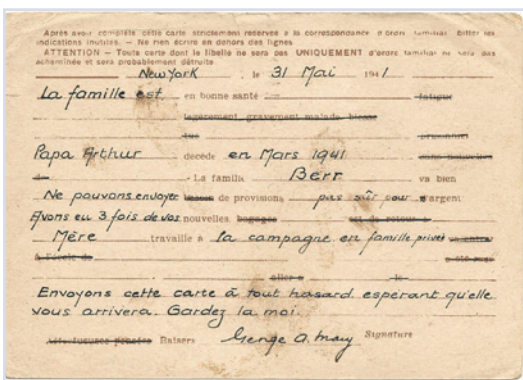 Après avoir complété cette carte strictement réservée à la correspondance d'ordre familial biffer les
indications inutiles. — Ne rien écrire en dehors des lignes
ATTENTION — Toute carte dont le libellé ne sera pas UNIQUEMENT d'ordre familial ne sera pas
acheminée et sera probablement détruite
New York le 31 Mai 1941
La famille est en bonne santé fatigué
légèrement gravement malade blessé
tué prisonnier
Papa Arthur décédé en Mars 1941 sans nouvelles
de - La famille Berr va bien
Ne pouvons envoyer besoin de provisions pas sûr pour d'argent
Avons eu 3 fois de vos nouvelles bagages est de retour à
Mère travaille à la campagne en famille privée va entrer
à l'école de a été reçu
aller à le
Envoyons cette carte à tout hasard espérant qu'elle
vous arrivera. Gardez la moi.
Affectueuses pensées Baisers Signature